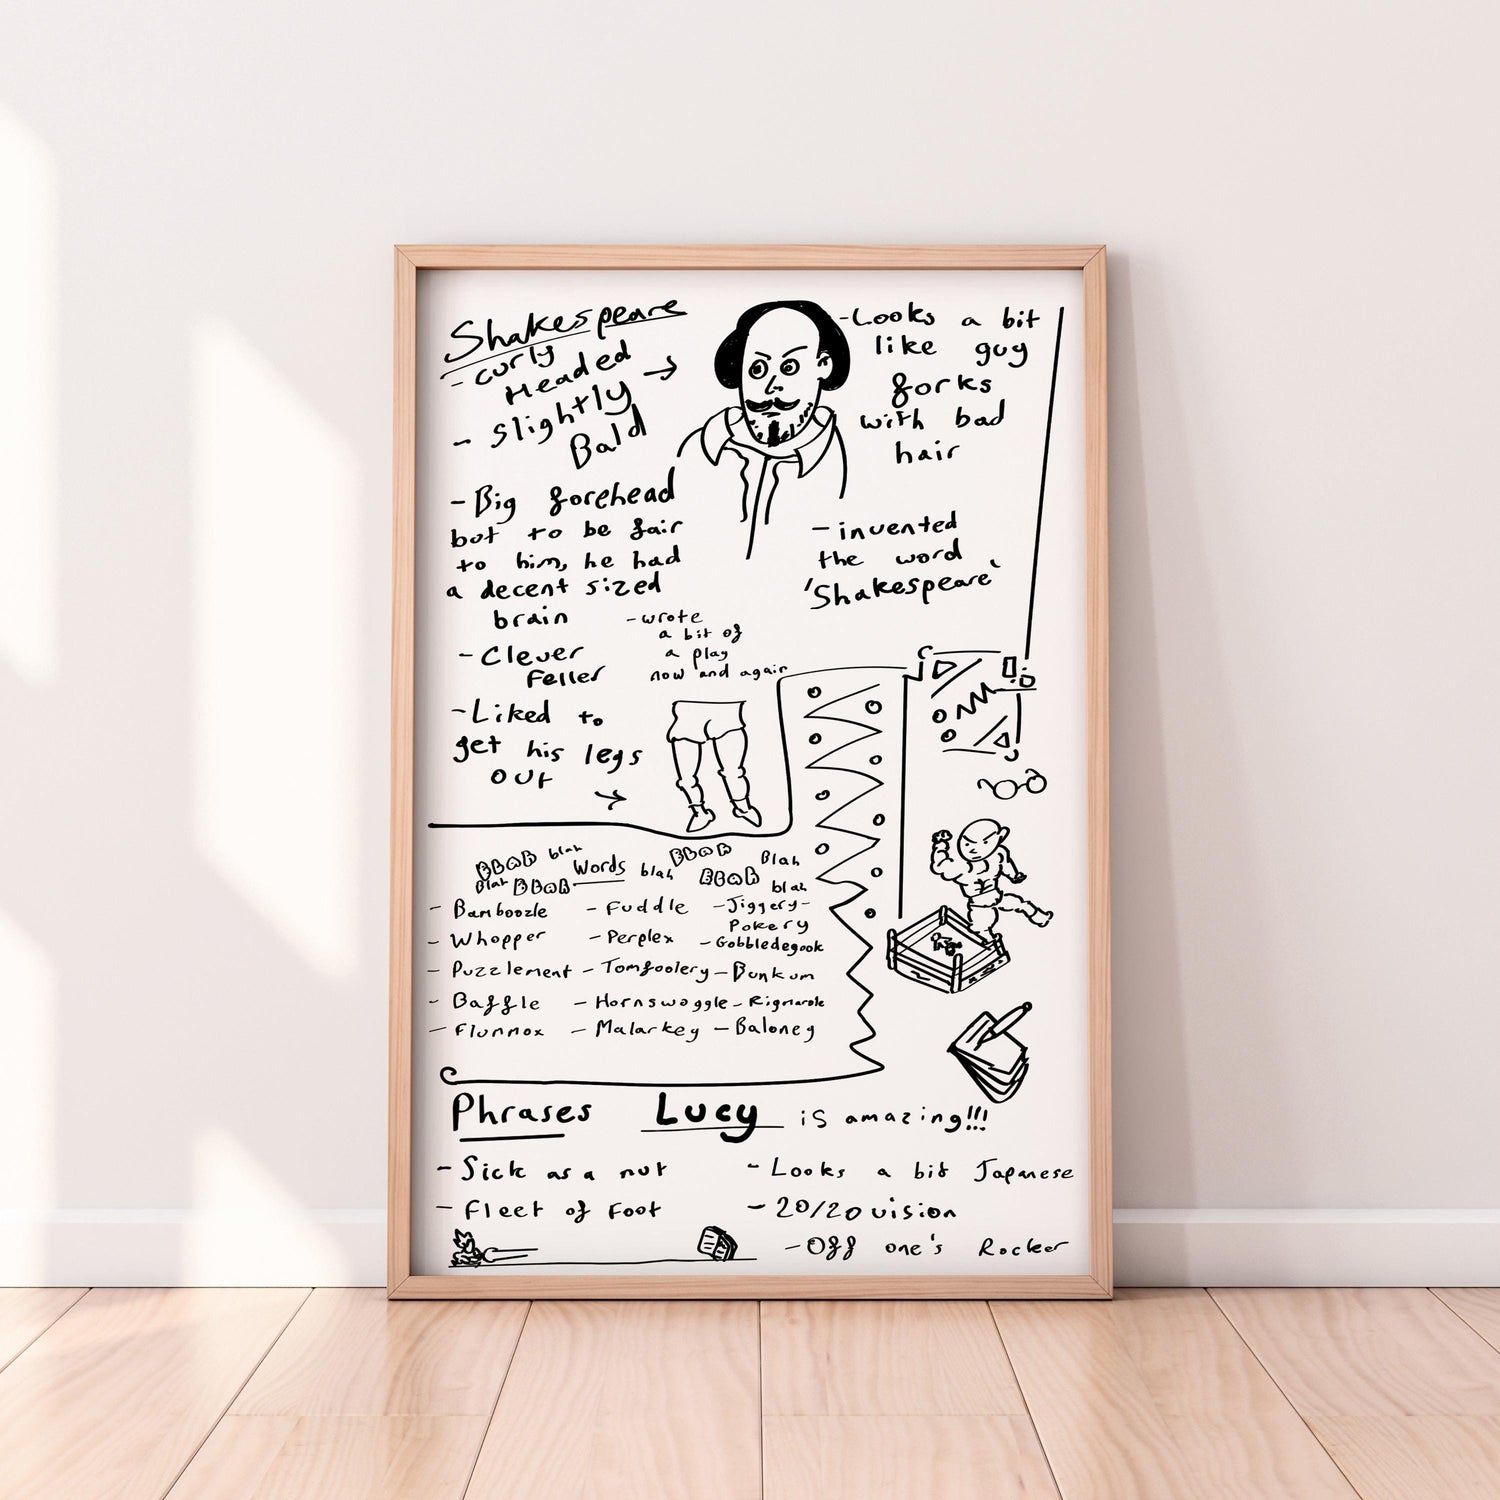 Shakespeare
- curly
Headed
- Slightly
Bald
- Looks a bit
like guy
forks
with bad
hair
- Big forehead
but to be fair
to him, he had
a decent sized
brain
- invented
the word
'Shakespeare'
- Clever
Feller
- wrote
a bit of
a play
now and again
- Liked to
get his legs
out
BLAH blah Words blah BLAH Blah
Blah BLAH BLAH blah
- Bamboozle - Fuddle - Jiggery-
Pokery
- Whopper - Perplex - Gobbledegook
- Puzzlement - Tomfoolery - Bunkum
- Baffle - Hornswoggle - Rigmarole
- Flummox - Malarkey - Baloney
Phrases Lucy is amazing!!!
- Sick as a nut - Looks a bit Japanese
- Fleet of Foot - 20/20 vision
- Off one's Rocker